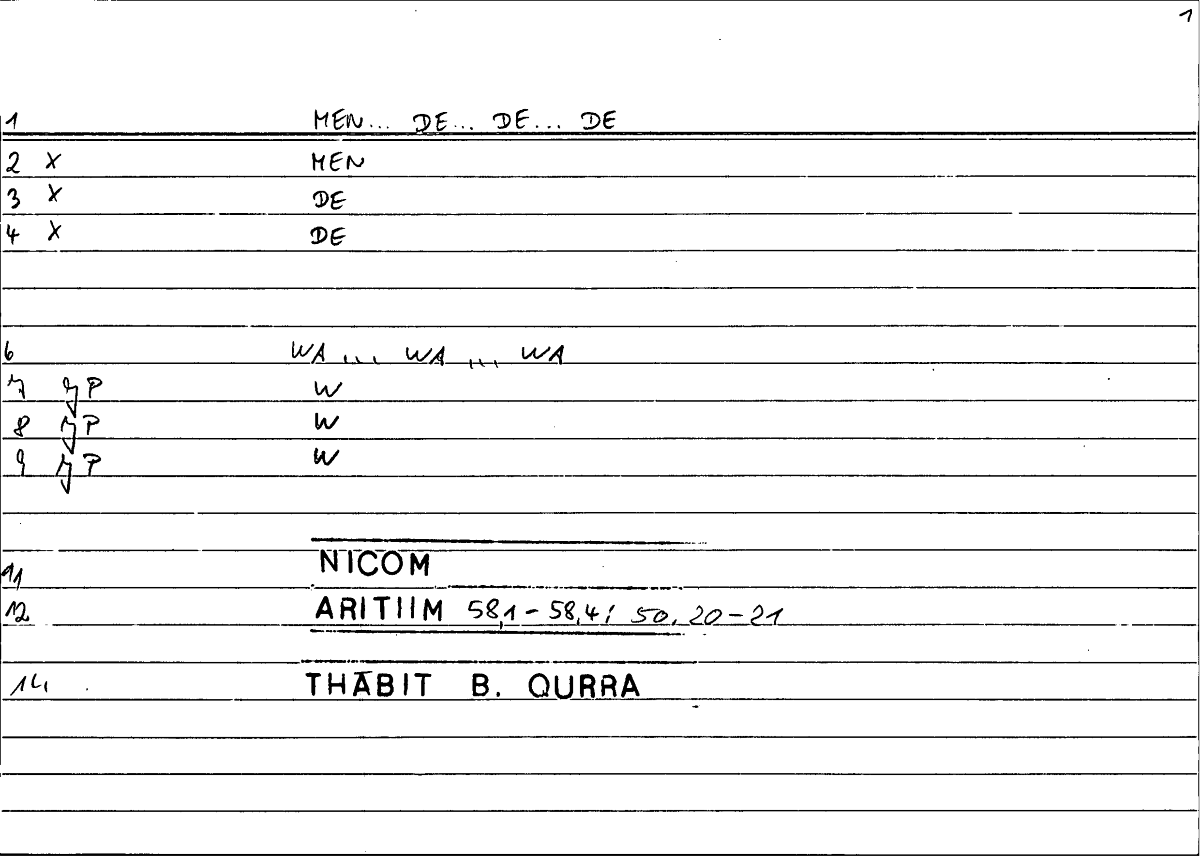 1
1 MEN... DE... DE... DE
2 X MEN
3 X DE
4 X DE
6 WA ... WA ... WA
7 P W
8 P W
9 P W
11 NICOM
12 ARITIIM 58,1-58,4; 50.20-21
14 THĀBIT B. QURRA